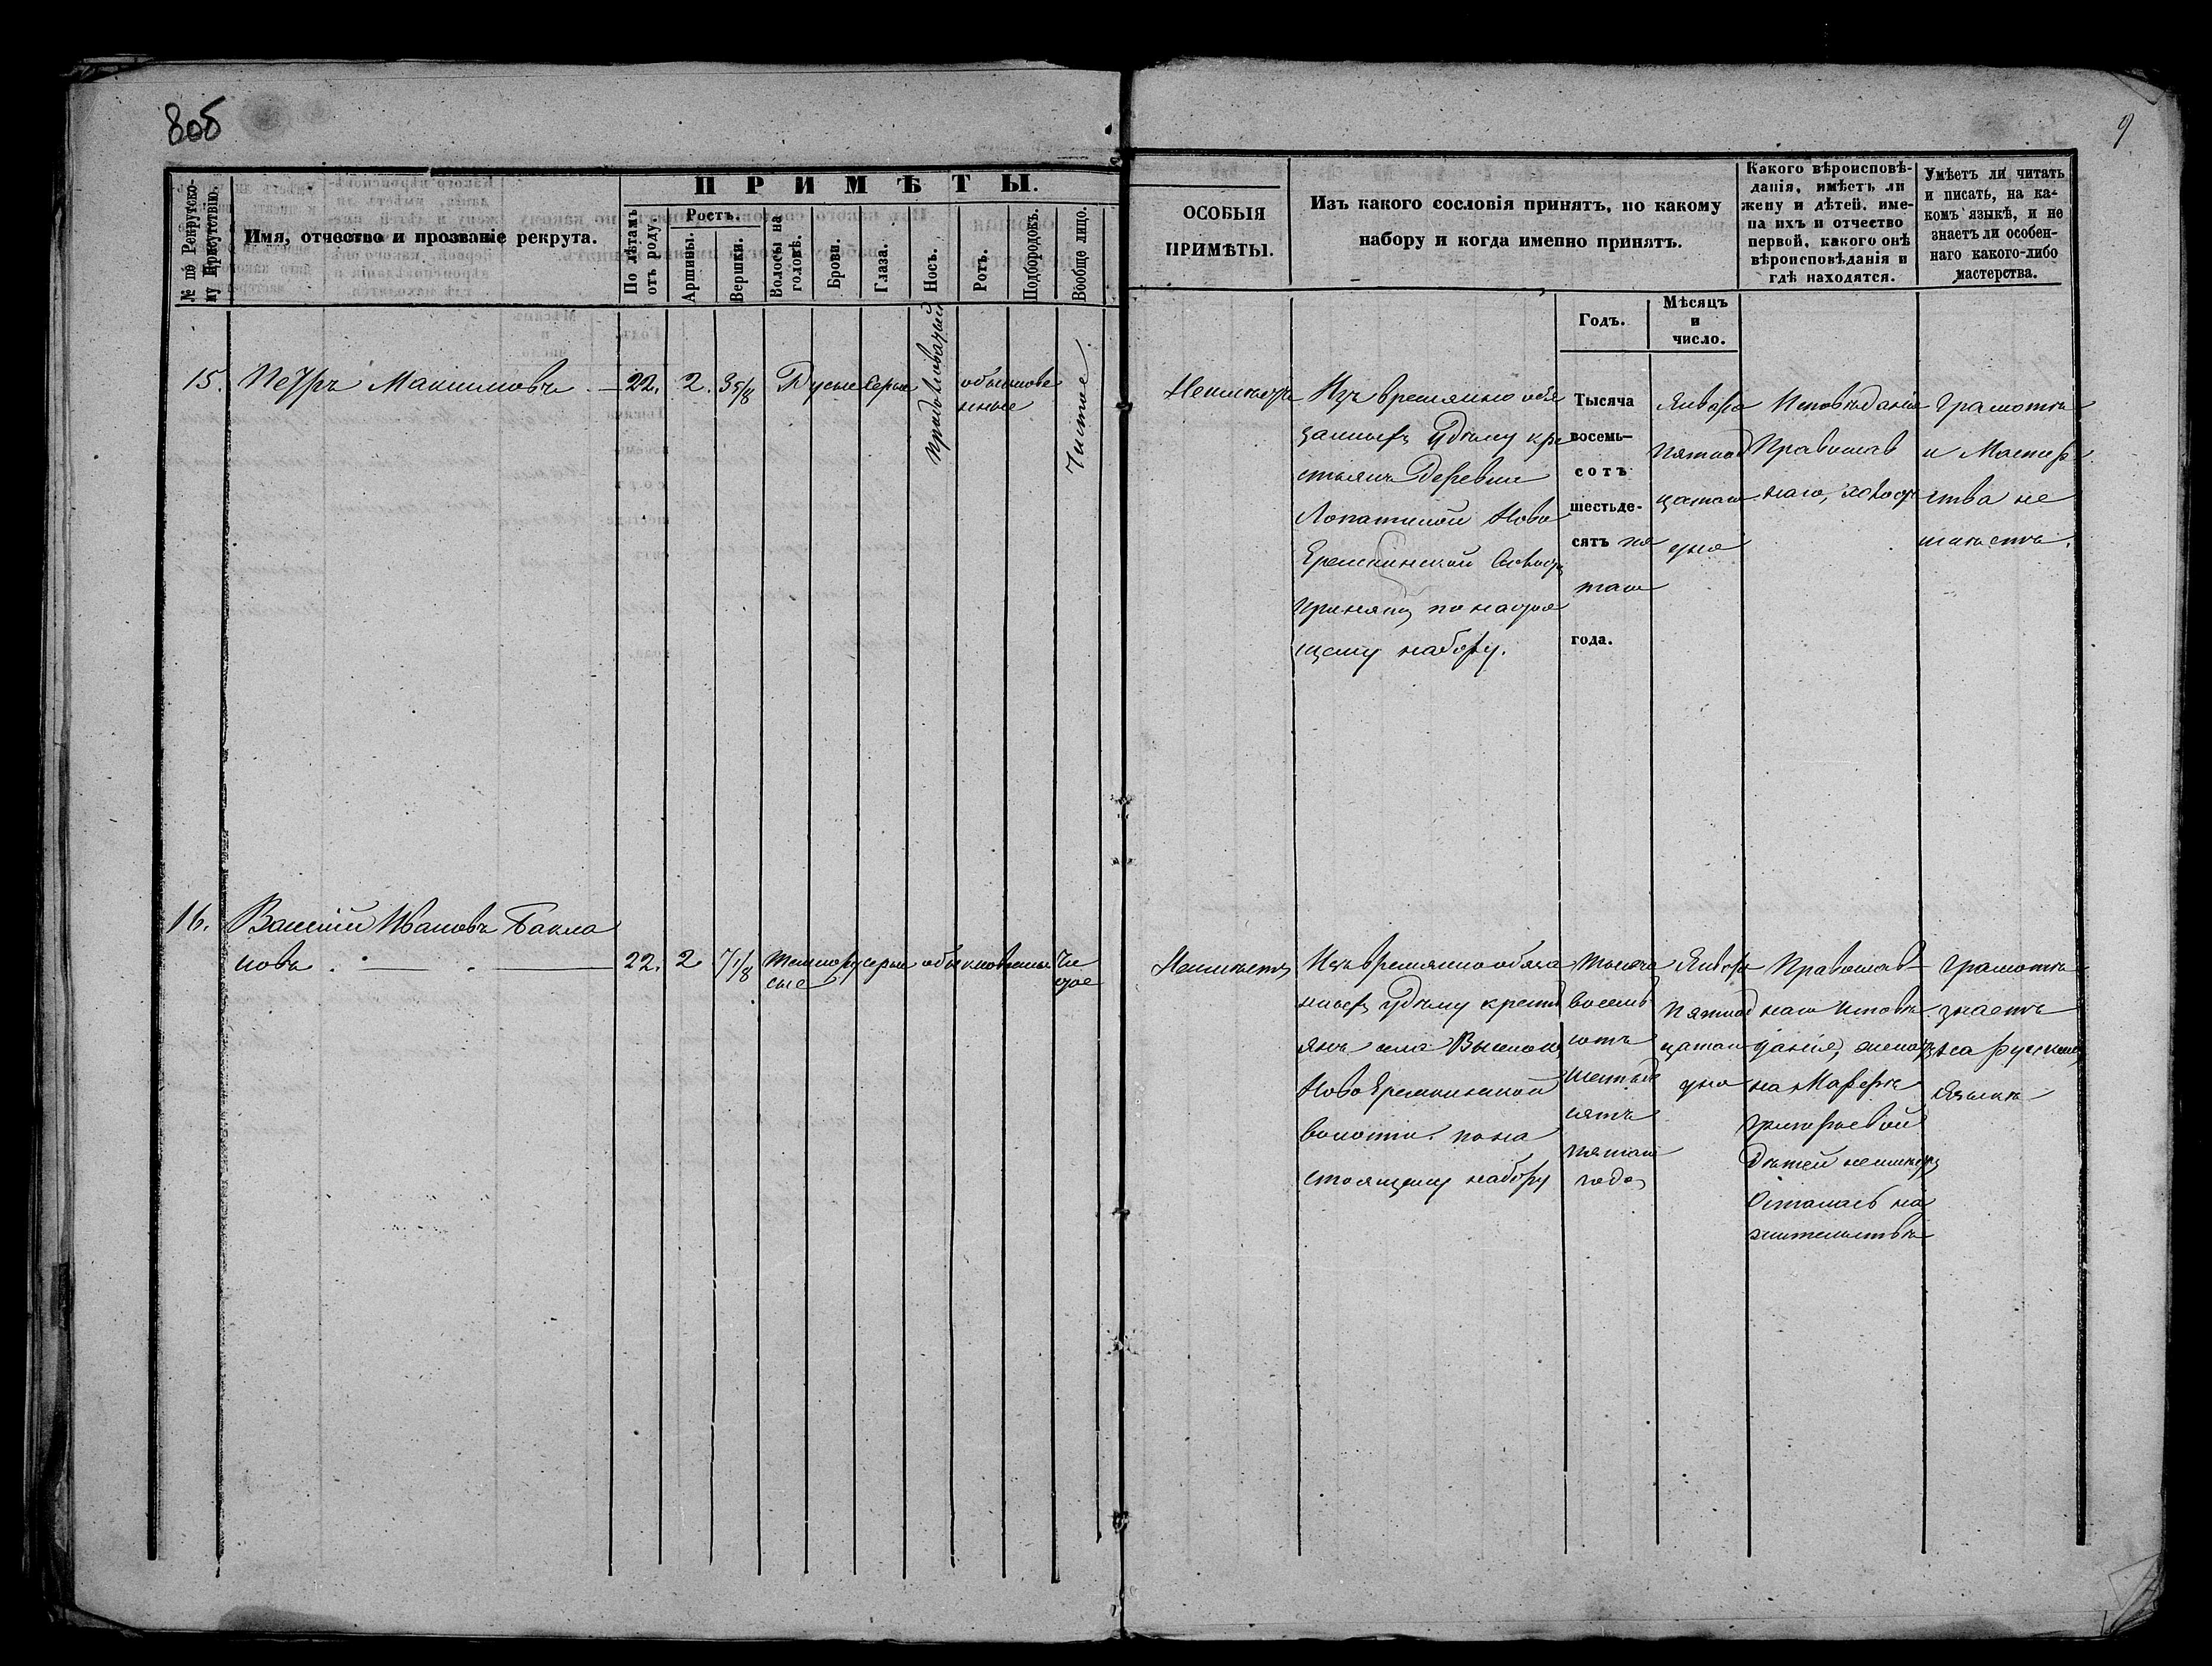 8об
9
№ по Рекрутско-
му Присутствію.
Имя, отчество и прозваніе рекрута.
ПРИМѢТЫ.
По лѣтамъ
отъ роду.
Ростъ.
Аршины.
Вершки.
Волосы на
головѣ.
Брови.
Глаза.
Носъ.
Ротъ.
Подбородокъ.
Вообще лицо.
ОСОБЫЯ
ПРИМѢТЫ.
Изъ какого сословія принятъ, по какому
набору и когда именно принятъ.
Годъ.
Мѣсяцъ
и
число.
Какого вѣроисповѣ-
данія, имѣетъ ли
жену и дѣтей, име-
на ихъ и отчество
первой, какого онѣ
вѣроисповѣданія и
гдѣ находятся.
Умѣетъ ли читать
и писать, на ка-
комъ языкѣ, и не
знаетъ ли особен-
наго какого-либо
мастерства.
15.
Петръ Максимовъ
22.
2.
3 5/8
Русые
Серые
обыкнове
нные
Чистое
Неимѣетъ
Изъ временно обя
занныхъ Удѣлу кре
стьянъ Деревни
Лопатиной Ново
Еремкинской волости
принятъ по настоя
щему набору.
Тысяча
восемь-
сотъ
шестьде-
сятъ пя
таго
года.
Января
Пятнад
цатаго
дня
Исповѣданія
Православ
наго, холостъ
Грамотѣ
и Мастер
ства не
знаетъ.
16.
Василій Ивановъ Бакла
новъ
22.
2
7 1/8
темнору
сые
серые
обыкновенные
Чи
стое
Неимѣетъ
Изъ временно обяза
нныхъ Удѣлу кресть
янъ села Высокаго
Ново Еремкинской
волости. по на
стоящему набору
Тысяча
восемь
сотъ
шестьде
сятъ
пятаго
года
Января
Пятнад
цатаго
дня
Православ-
наго исповѣ
данія, женатъ
на Марфѣ
Григорьевой
Дѣтей неимѣетъ
Осталась на
жительствѣ
Грамотѣ
знаетъ
на русскомъ
Языкѣ